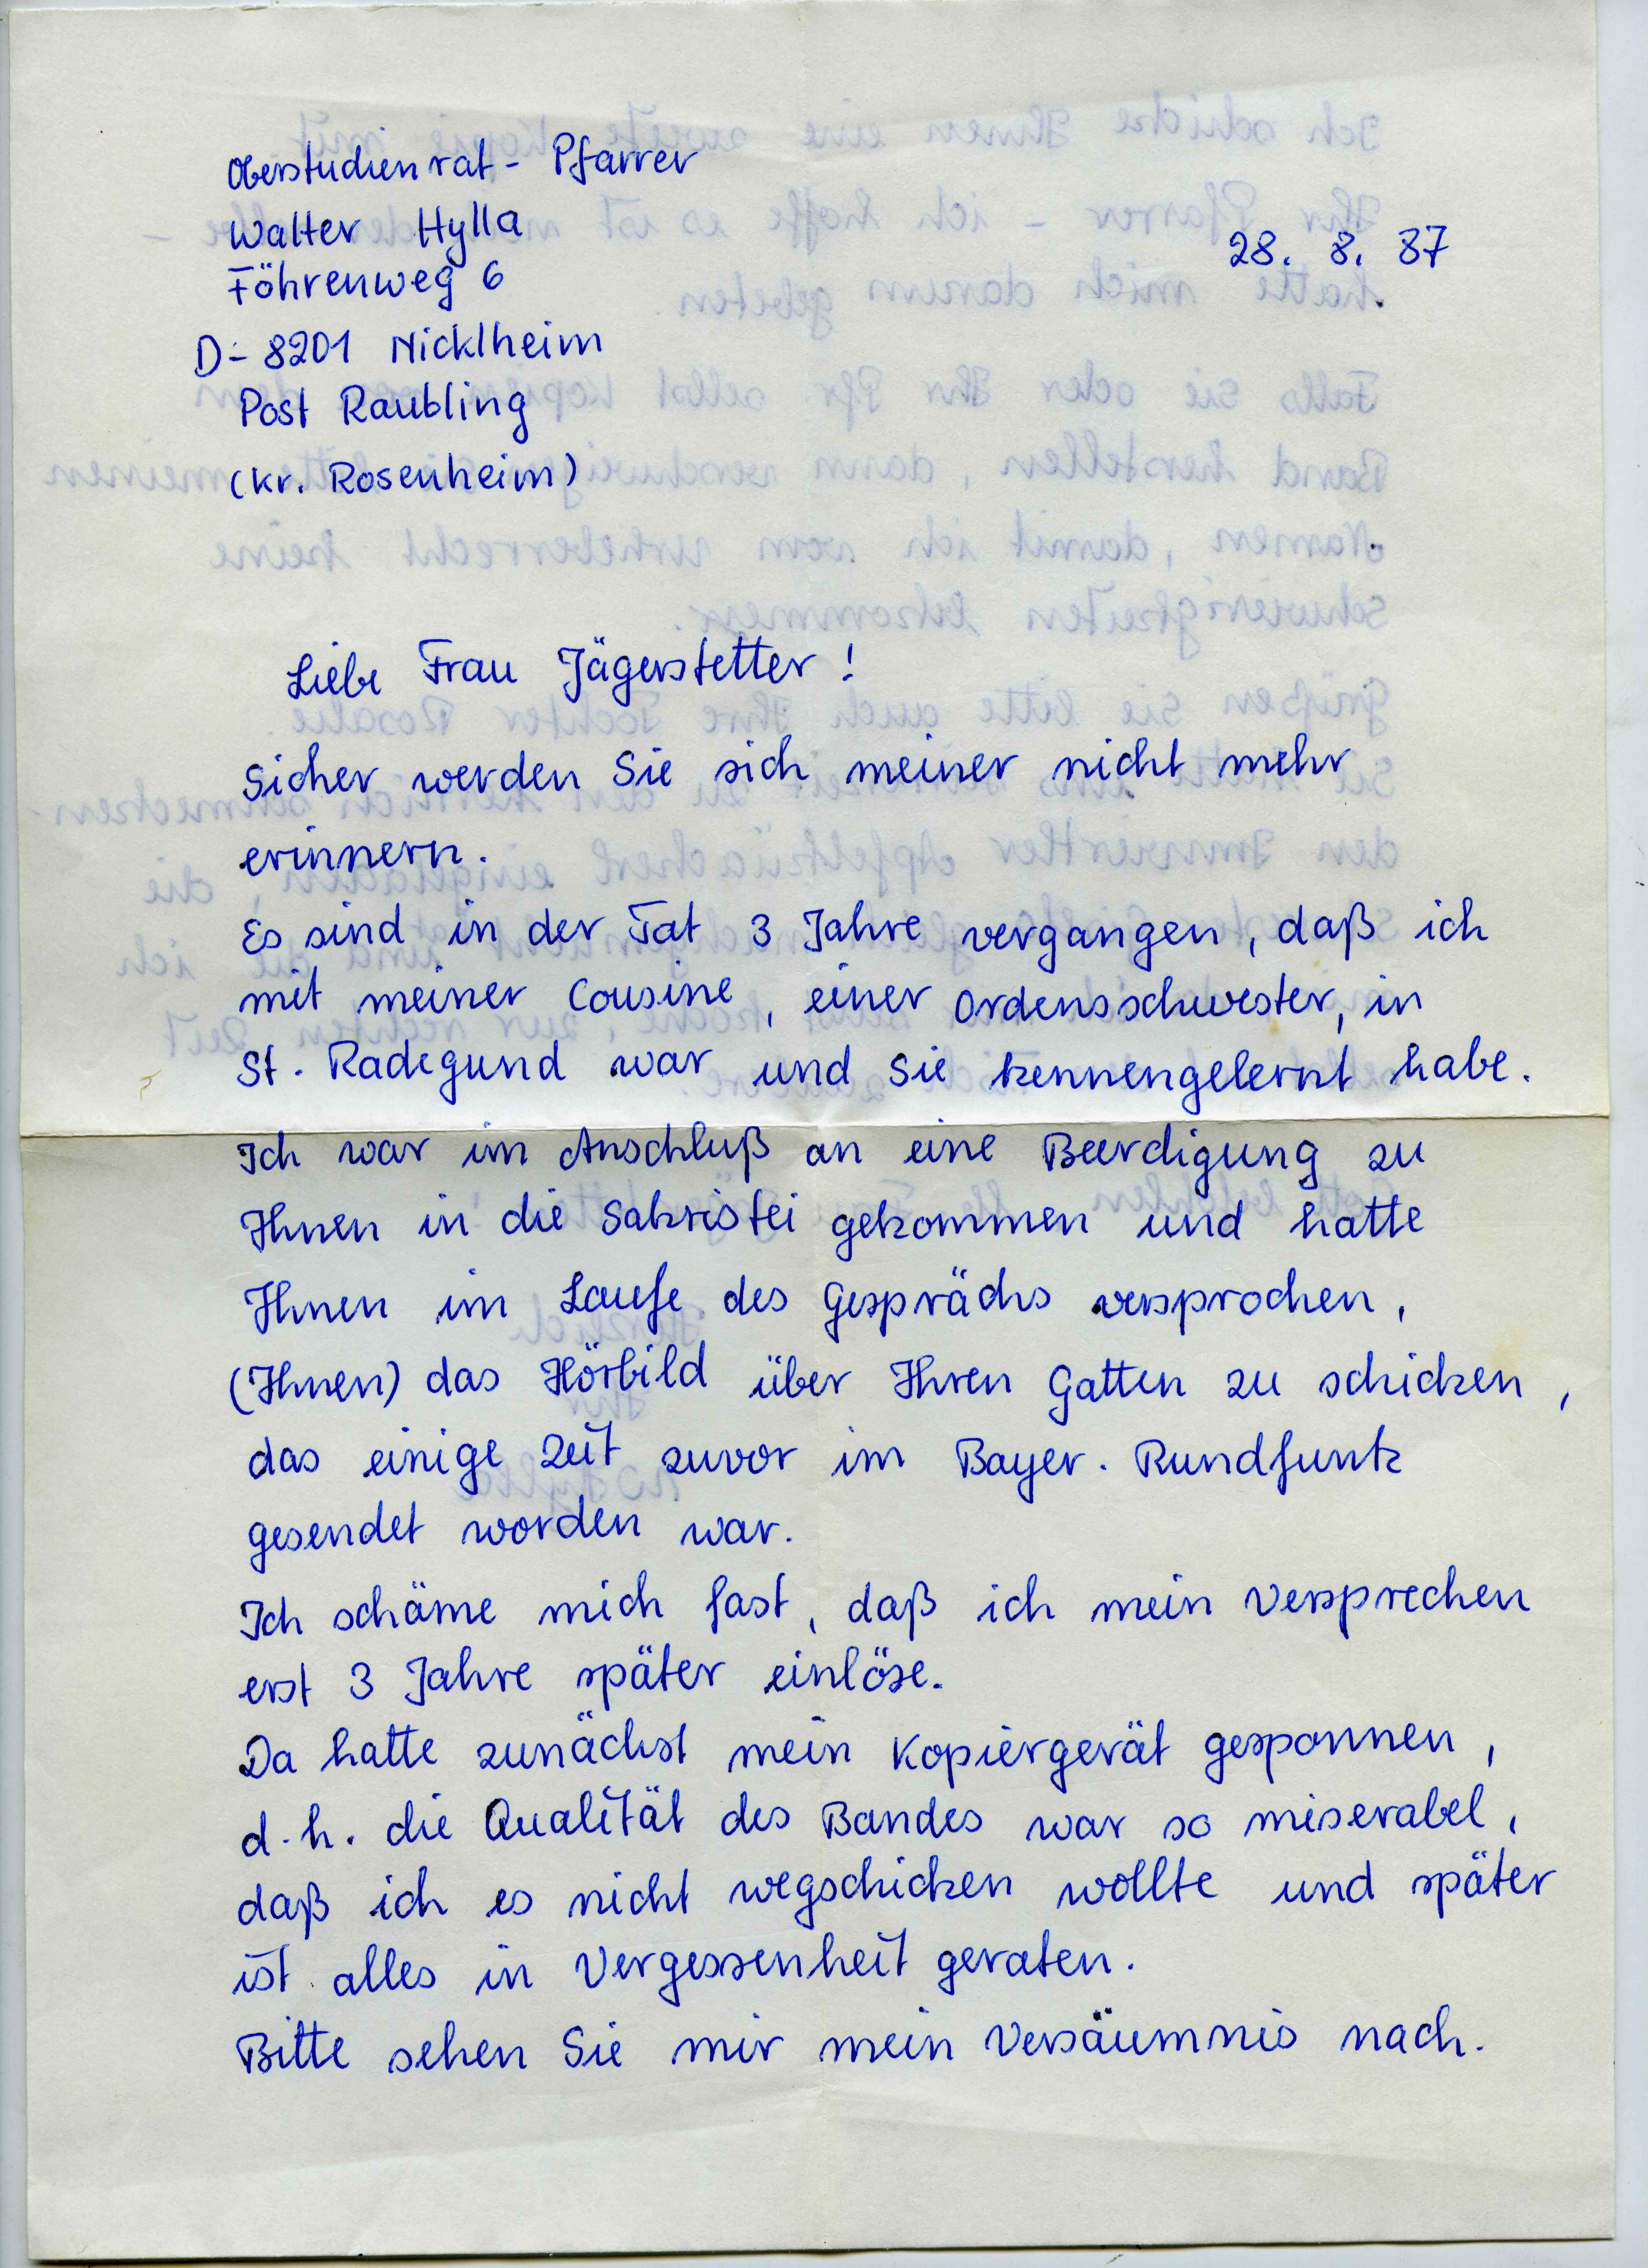 Oberstudienrat - Pfarrer
Walter Hylla
28. 8. 87
Föhrenweg 6
D - 8201 Nicklheim
Post Raubling
(Kr. Rosenheim)
Liebe Frau Jägerstetter !
Sicher werden Sie sich meiner nicht mehr
erinnern.
Es sind in der Tat 3 Jahre vergangen, daß ich
mit meiner Cousine, einer Ordensschwester, in
St. Radegund war und Sie kennengelernt habe.
Ich war im Anschluß an eine Beerdigung zu
Ihnen in die Sakristei gekommen und hatte
Ihnen im Laufe des Gesprächs versprochen,
(Ihnen) das Hörbild über Ihren Gatten zu schicken,
das einige Zeit zuvor im Bayer. Rundfunk
gesendet worden war.
Ich schäme mich fast, daß ich mein Versprechen
erst 3 Jahre später einlöse.
Da hatte zunächst mein Kopiergerät gesponnen,
d.h. die Qualität des Bandes war so miserabel,
daß ich es nicht wegschicken wollte und später
ist alles in Vergessenheit geraten.
Bitte sehen Sie mir mein Versäumnis nach.